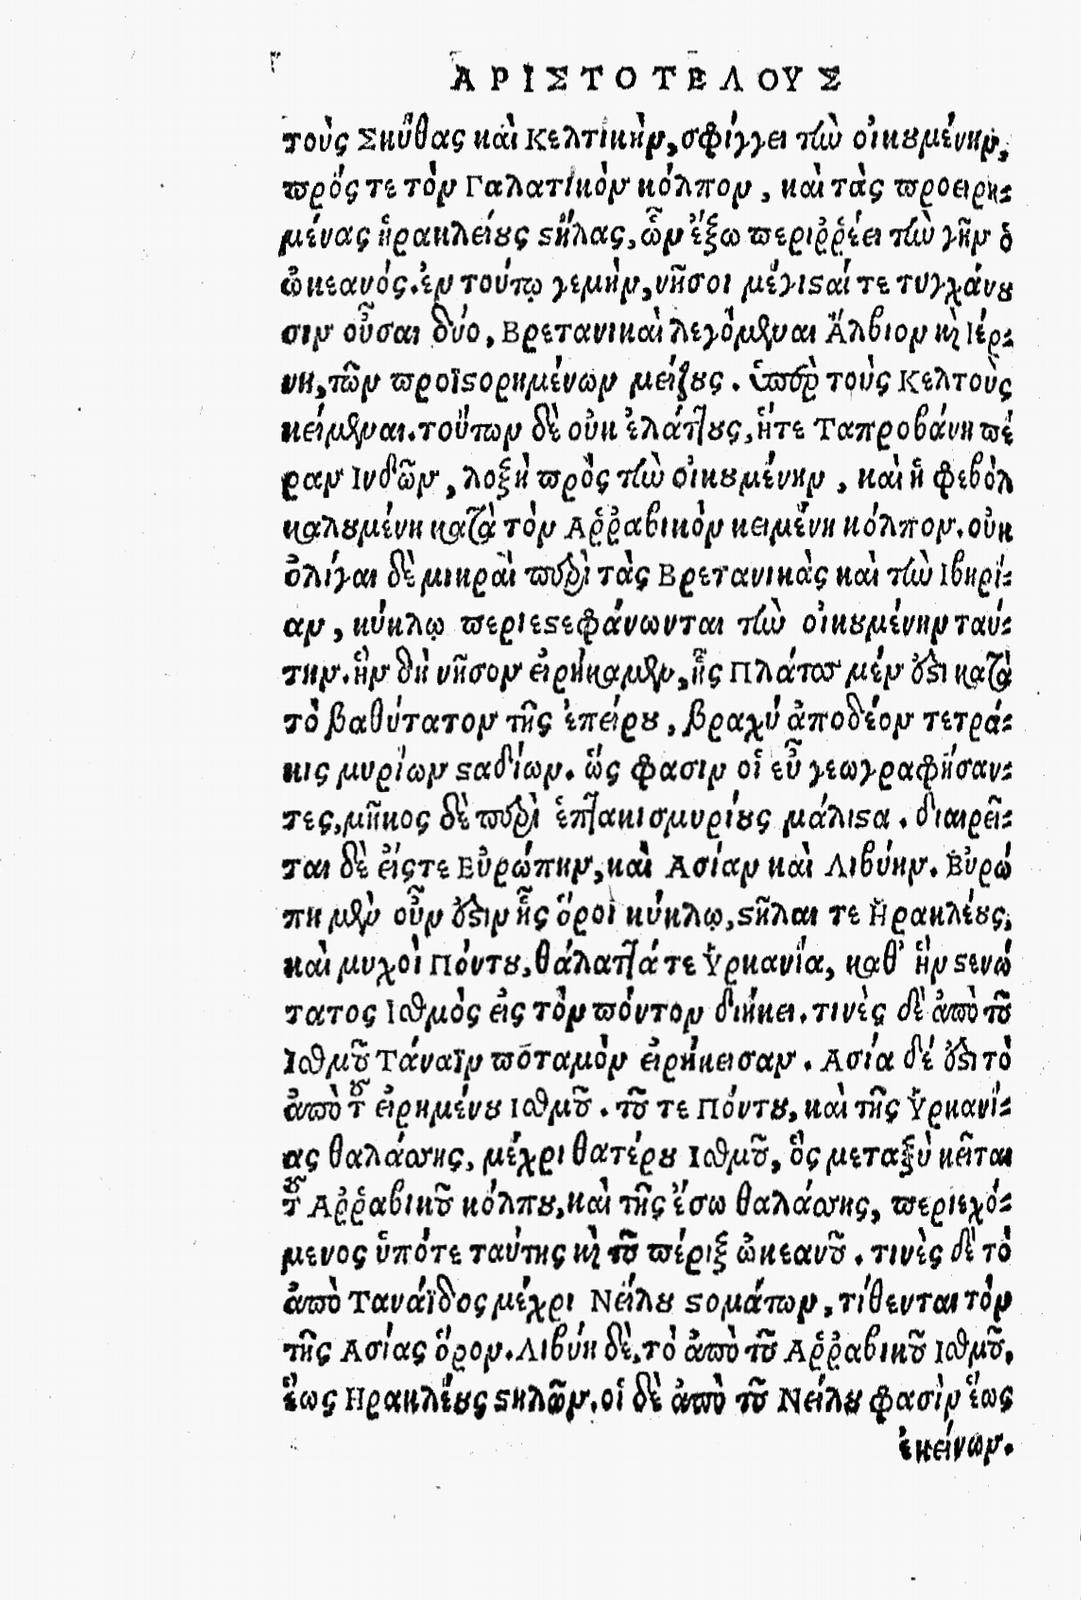 ΑΡΙΣΤΟΤΕΛΟΥΣ
τοὺς Σκύθας καὶ Κελτικὴν, σφίγγει τὴν οἰκουμένην,
πρός τε τὸν Γαλατικὸν κόλπον, καὶ τὰς προειρη-
μένας ἡρακλείους στήλας, ὧν ἔξω περιῤῥέει τὴν γῆν ὁ
ὠκεανός. ἐν τούτῳ γεμὴν, νῆσοι μέγισταί τε τυγχάνου
σιν οὖσαι δύο, Βρετανικαὶ λεγόμεναι Ἄλβιον καὶ Ιέρ-
νη, τῶν προϊστορημένων μείζους. ὑπὲρ τοὺς Κελτοὺς
κείμεναι. τούτων δὲ οὐκ ἐλάττους, ἥτε Ταπροβάνη πέ
ραν Ινδῶν, λοξὴ πρὸς τὴν οἰκουμένην, καὶ ἡ φεβὸλ
καλουμένη κατὰ τὸν Αῤῥαβικὸν κειμένη κόλπον. οὐκ
ὀλίγαι δὲ μικραὶ περὶ τὰς Βρετανικὰς καὶ τὴν Ιβηρί-
αν, κύκλῳ περιεστεφάνωνται τὴν οἰκουμένην ταύ-
την. ἣν δὴ νῆσον εἰρήκαμεν, ἧς Πλάτος μέν ἐστι κατὰ
τὸ βαθύτατον τῆς ἐπείρου, βραχύ ἀποδέον τετρά-
κις μυρίων σταδίων. ὥς φασιν οἱ εὖ γεωγραφήσαν-
τες, μῆκος δὲ περὶ ἑπτακισμυρίους μάλιστα. διαιρεῖ-
ται δὲ εἴςτε Εὐρώπην, καὶ Ασίαν καὶ Λιβύην. Εὐρώ
πη μὲν οὖν ἐστιν ἧς ὅροι κύκλῳ, στῆλαι τε Ἡρακλέους,
καὶ μυχοὶ Πόντου, θάλαττά τε Ὑρκανία, καθ' ἣν στενώ
τατος Ισθμὸς εἰς τὸν πόντον διήκει. τινὲς δὲ ἀπὸ τοῦ
Ισθμοῦ Τάναϊν πόταμὸν εἰρήκεισαν. Ασία δέ ἐστι τὸ
ἀπὸ τοῦ εἰρημένου Ισθμοῦ. τοῦ τε Πόντου, καὶ τῆς Ὑρκανί-
ας θαλάσσης, μέχρι θατέρου Ισθμοῦ, ὃς μεταξὺ κεῖται
τοῦ Αῤῥαβικοῦ κόλπου, καὶ τῆς ἔσω θαλάσσης, περιεχό-
μενος ὑπότε ταύτης καὶ τοῦ πέριξ ὠκεανοῦ. τινὲς δὲ τὸ
ἀπὸ Τανάϊδος μέχρι Νείλου στομάτων, τίθενται τὸν
τῆς Ασίας ὅρον. Λιβύη δὲ, τὸ ἀπὸ τοῦ Αῤῥαβικοῦ Ισθμοῦ,
ἕως Ηρακλέους στηλῶν. οἱ δὲ ἀπὸ τοῦ Νείλου φασὶν ἕως
ἐκείνων.